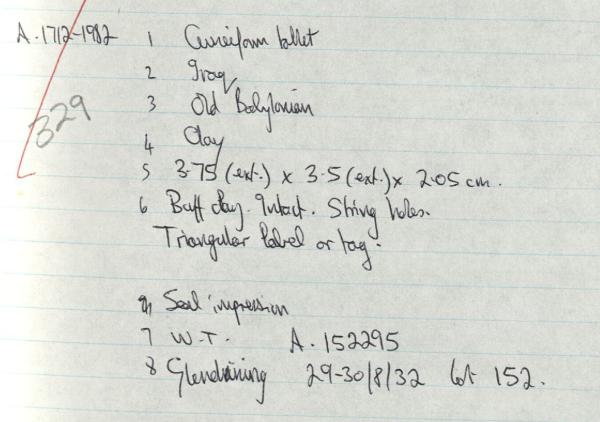 A.1712-1982 1 Cuneiform tablet
329
2 Iraq
3 Old Babylonian
4 Clay
5 3.75 (ext.) x 3.5 (ext.) x 2.05 cm.
6 Buff clay. Intact. String holes.
Triangular label or tag.
9 Seal impression
7 W.T. A.152295
8 Glendining 29-30/8/32 lot 152.